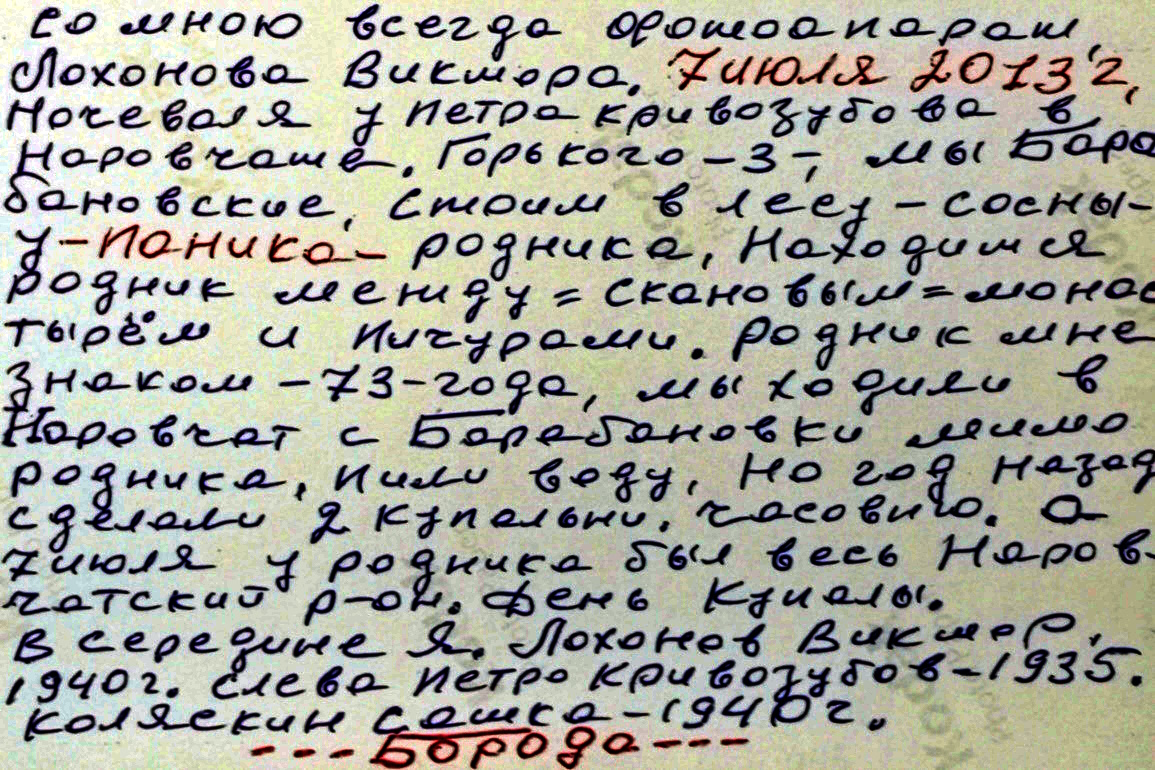 со мною всегда фотоапарат
Лохонова Виктора. 7 июля 2013 г,
Ночеваля у Петра кривозубова в
Наровчате. Горького-3-, мы Бара
бановские, стоим в лесу-сосны-
у-паника-родника, находится
родник между=скановым=монас
тырём и Пичурами. родник мне
знаком-73-года, мы ходили в
Наровчат с Барабановки мимо
родника, пили воду, но год назад
сделали 2 купальни, часовню. а
7 июля у родника был весь Наров-
чатский р-он. День Купалы.
в середине я. Лохонов Виктор,
1940г. слева Петро Кривозубов-1935.
коляскин сашка-1940г.
---Борода---